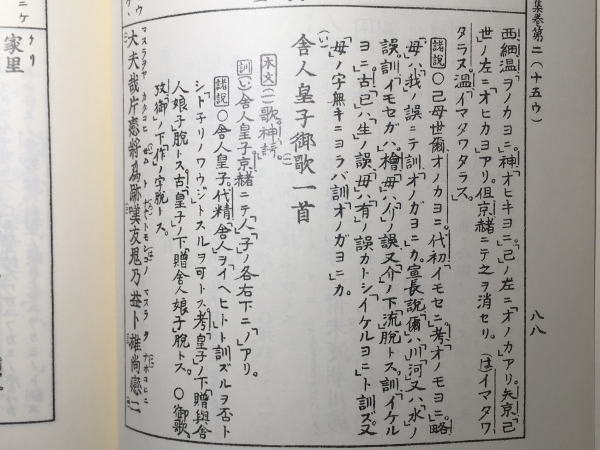 集巻第二(十五ウ)
八八
西細温ヲノカヨニ。神オヒキヨニ。「己」ノ左ニ「オノカ」アリ。矢京「己
世」ノ左ニ「オヒカヨ」アリ。但京赭ニテ之ヲ消セリ。はイマタワ
タラス。温「イマタワタラス。」
諸説 〇己母世爾オノカヨニ。代初イモセニ。考オノモヨニ。略
「母」ハ「我」ノ誤ニテ訓オノガヨニカ。宣長説「爾」ハ「川」「河」又ハ「水」ノ
誤、訓イモセガハ。檜「母」ハ「介」ノ誤、又「介」ノ下「流」脱トス。訓イケル
ヨニ。古「己」ハ「生」ノ誤、「母」ハ「有」ノ誤カトシイケルヨニト訓ズ。又
「母」ノ字無キニヨラバ訓オノガヨニカ。
舎人皇子御歌一首
本文 (一)歌。神「謌」。
訓 (い)舎人皇子京赭ニテ「人」「子」ノ各右下ニ「ノ」アリ。
諸説 〇舎人皇子代精「舎人」ヲイヘヒトト訓ズルヲ否ト
シトネリノワウジトスルヲ可トス。考「皇子」ノ下「贈與舎
人娘子」脱トス。古「皇子」ノ下「贈舎人娘子」脱トス。 〇御歌
攷「御」ノ下「作」ノ字脱トス。
大夫哉片戀將爲跡嘆友鬼乃益卜雄尚戀二
家里